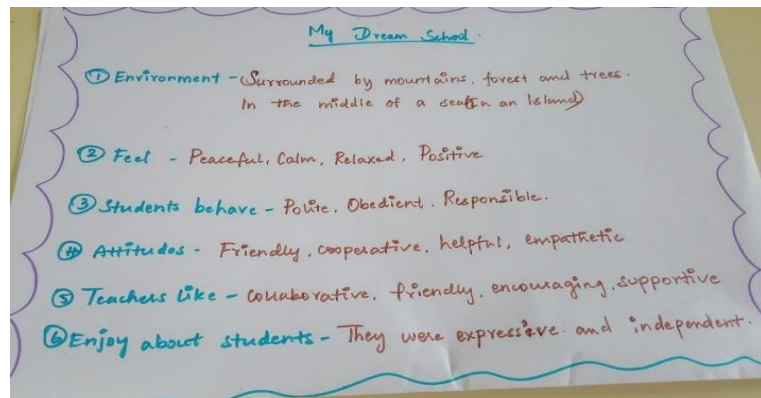 My Dream School.
① Environment - Surrounded by mountains, forest and trees.
In the middle of a sea (In an Island)
② Feel - Peaceful, Calm, Relaxed, Positive
③ Students behave - Polite, Obedient, Responsible.
④ Attitudes - Friendly, cooperative, helpful, empathetic
⑤ Teachers Like - collaborative, friendly, encouraging, supportive
⑥ Enjoy about students - They were expressive and independent.